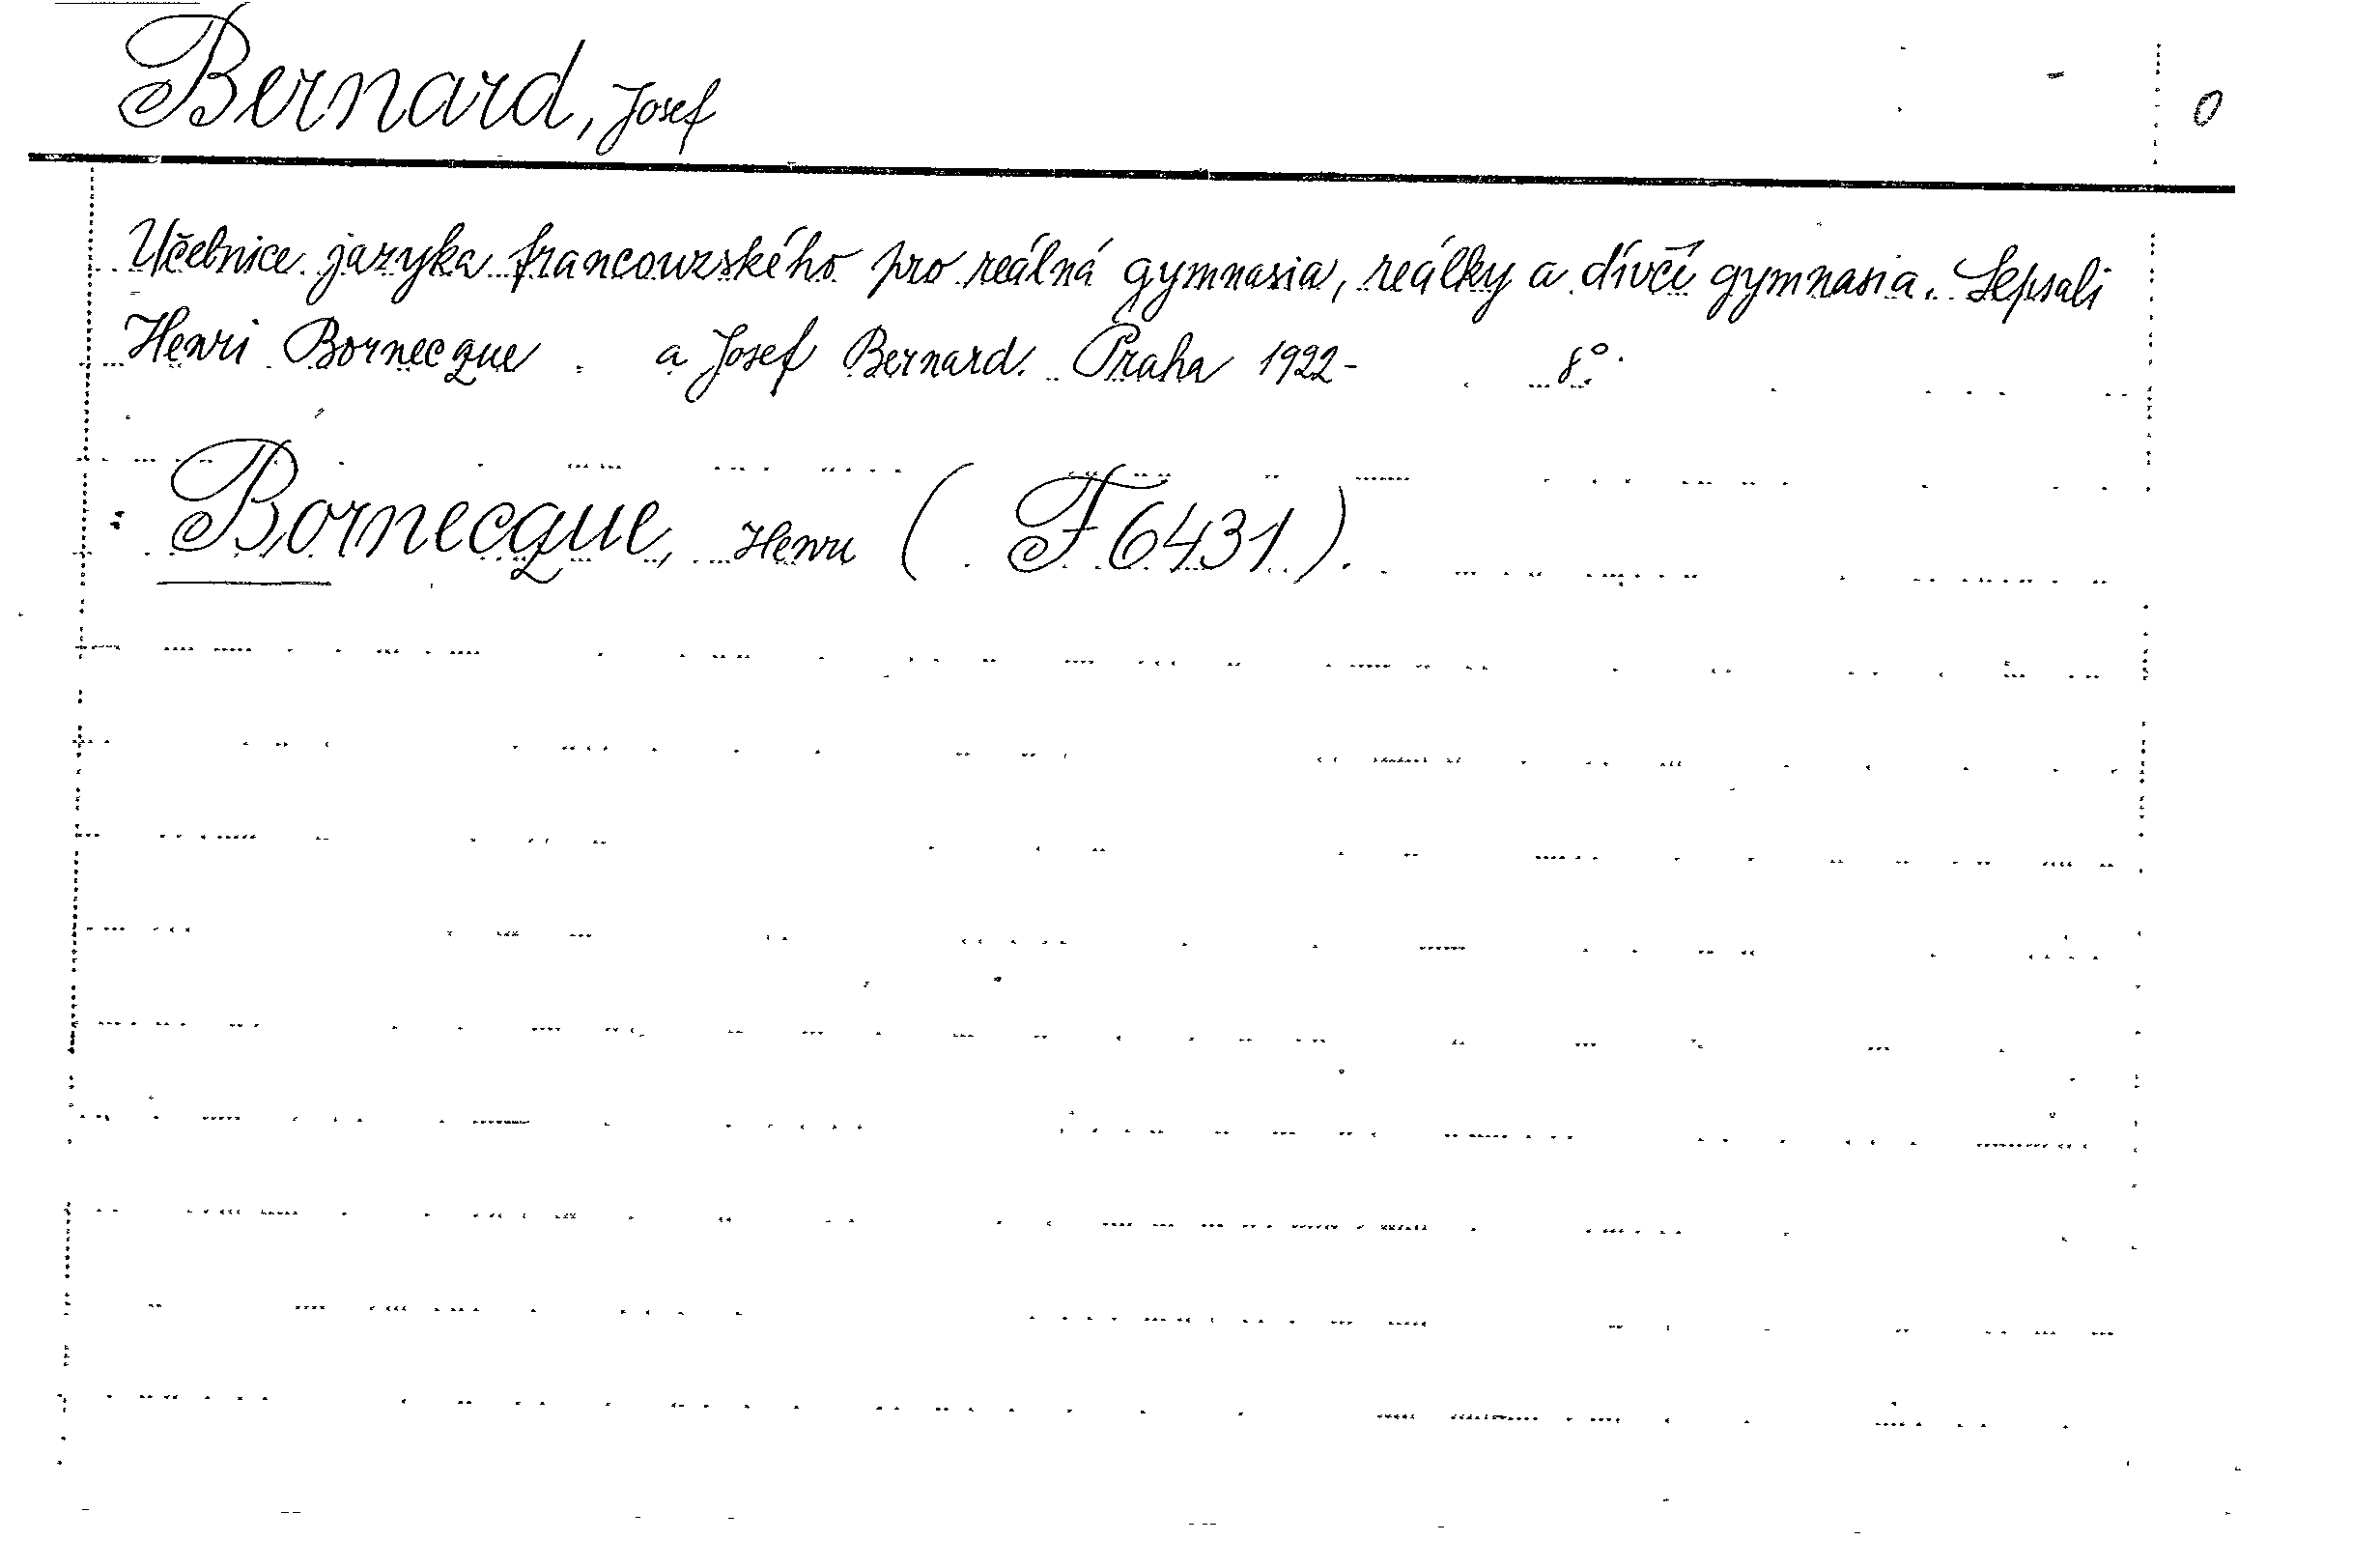 Bernard, Josef
0
Učebnice jazyka francouzského pro reálná gymnasia, reálky a dívčí gymnasia. Sepsali
Henri Bornecque a Josef Bernard. Praha 1922- 8°.
Bornecque, Henri (F 6431).